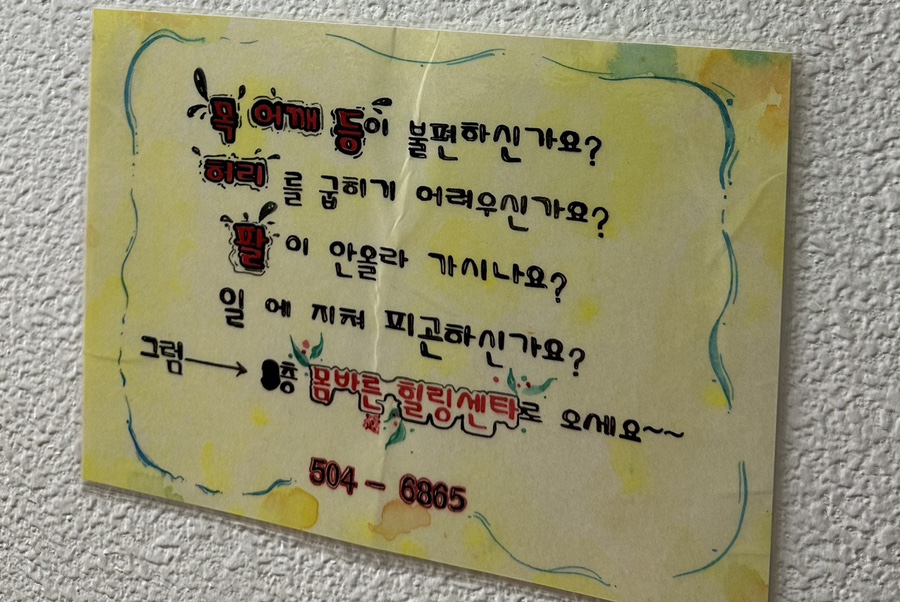 목 어깨 등이 불편하신가요?
허리를 굽히기 어려우신가요?
팔이 안올라 가시나요?
일에 지쳐 피곤하신가요?
그럼 → 층 몸바른 힐링센타로 오세요~~
504 - 6865